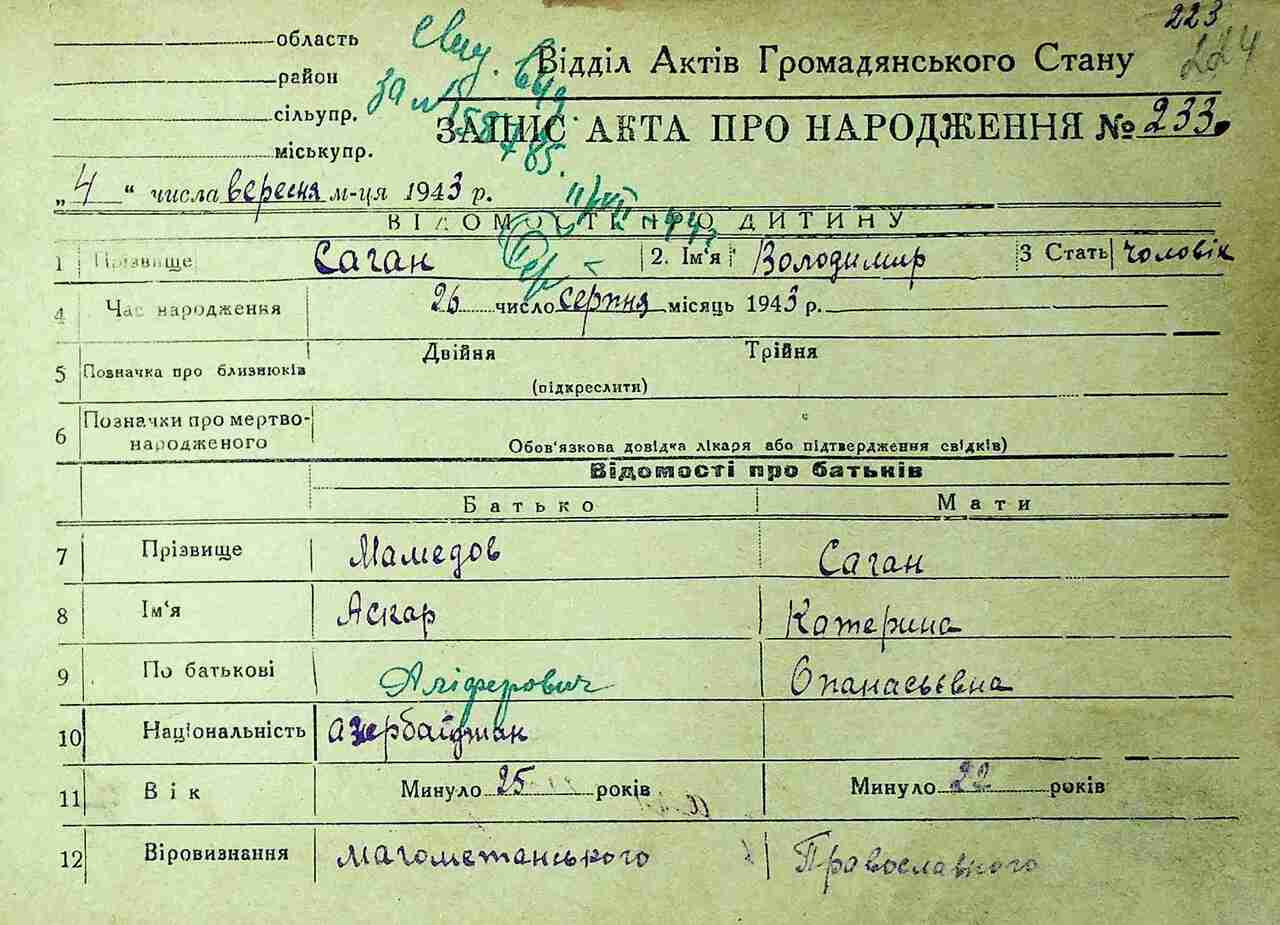 223
224
область
район
сільупр.
міськупр.
Відділ Актів Громадянського Стану
ЗАПИС АКТА ПРО НАРОДЖЕННЯ № 233.
„ 4 “ числа вересня м-ця 1943 р.
ВІДОМОСТІ ПРО ДИТИНУ
1 Прізвище Саган 2. Ім'я Володимир 3 Стать чоловік
4 Час народження 26 число серпня місяць 1943 р.
5 Позначка про близнюків Двійня Трійня
(підкреслити)
6 Позначки про мертво-
народженого
Обов'язкова довідка лікаря або підтвердження свідків)
Відомості про батьків
Батько Мати
7 Прізвище Мамедов Саган
8 Ім'я Аскар Катерина
9 По батькові Аліферович Опанасьєвна
10 Національність азербайджан
11 Вік Минуло 25 років Минуло 22 років
12 Віровизнання магометанського Православного